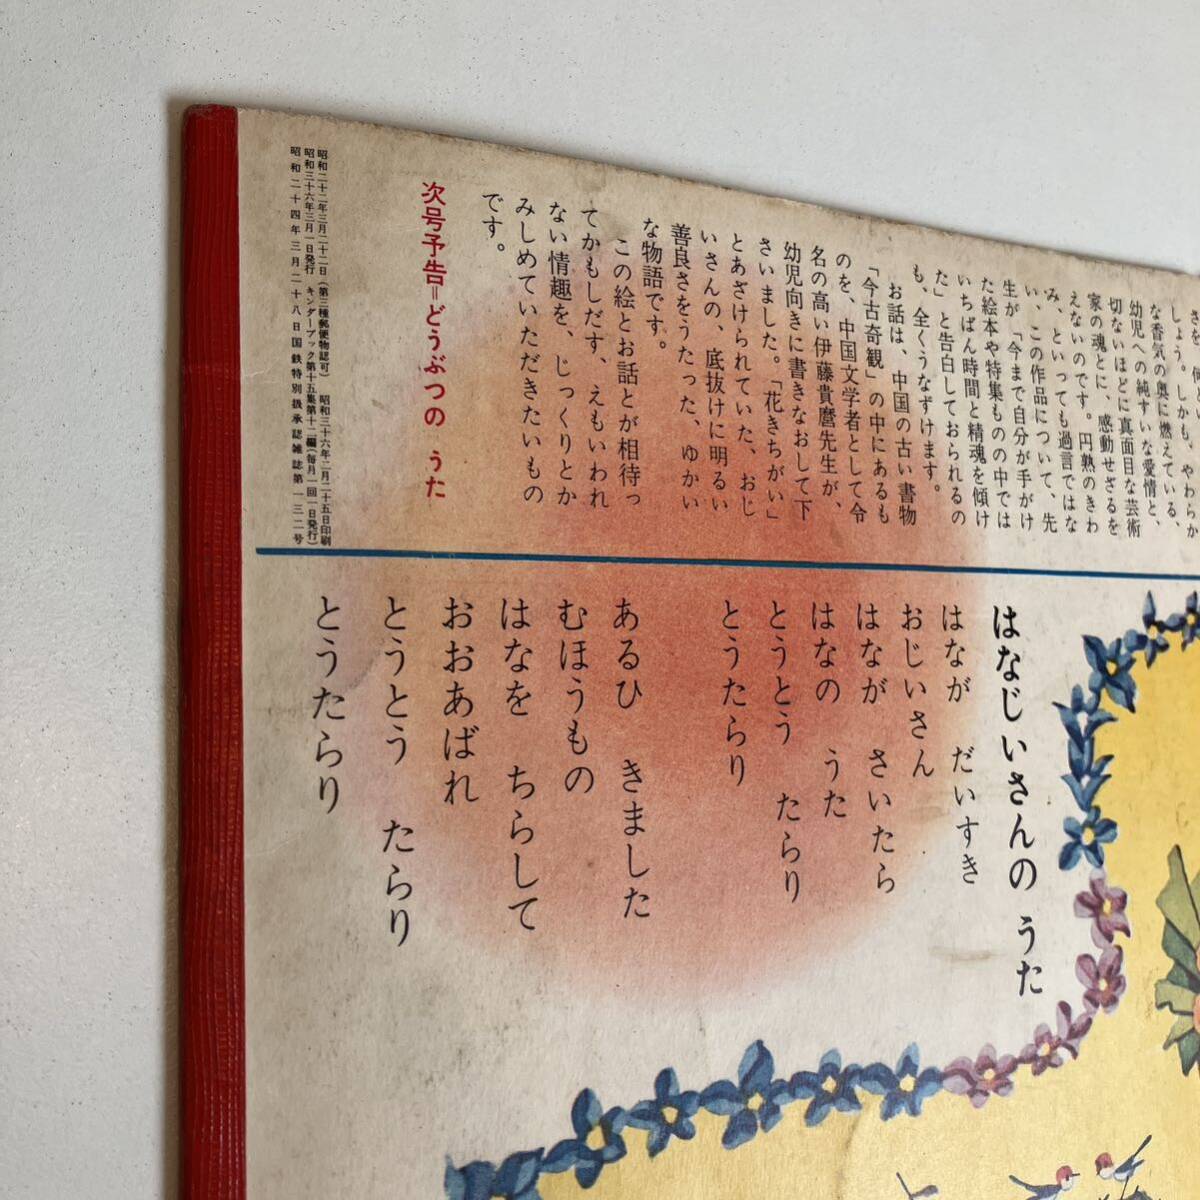 しょう。しかも、やわらか
な香気の奥に燃えている、
幼児への純すいな愛情と、
切ないほどに真面目な芸術
家の魂とに、感動せざるを
えないのです。円熟のきわ
み、といっても過言ではな
い、この作品について、先
生が「今まで自分が手がけ
た絵本や特集ものの中では
いちばん時間と精魂を傾け
た」と告白しておられるの
も、全くうなずけます。
お話は、中国の古い書物
「今古奇観」の中にあるも
のを、中国文学者として令
名の高い伊藤貴麿先生が、
幼児向きに書きなおして下
さいました。「花きちがい」
とあざけられていた、おじ
いさんの、底抜けに明るい
善良さをうたった、ゆかい
な物語です。
この絵とお話とが相待っ
てかもしだす、えもいわれ
ない情趣を、じっくりとか
みしめていただきたいもの
です。
次号予告=どうぶつの うた
昭和二十二年三月二十二日(第三種郵便物認可) 昭和三十六年二月二十五日印刷
昭和三十六年三月一日発行 キンダーブック第十五集第十二編(毎月一回一日発行)
昭和二十四年三月二十八日国鉄特別扱承認雑誌第一三二号
はなじいさんの うた
はなが だいすき
おじいさん
はなが さいたら
はなの うた
とうとう たらり
とうたらり
あるひ きました
むほうもの
はなを ちらして
おおあばれ
とうとう たらり
とうたらり